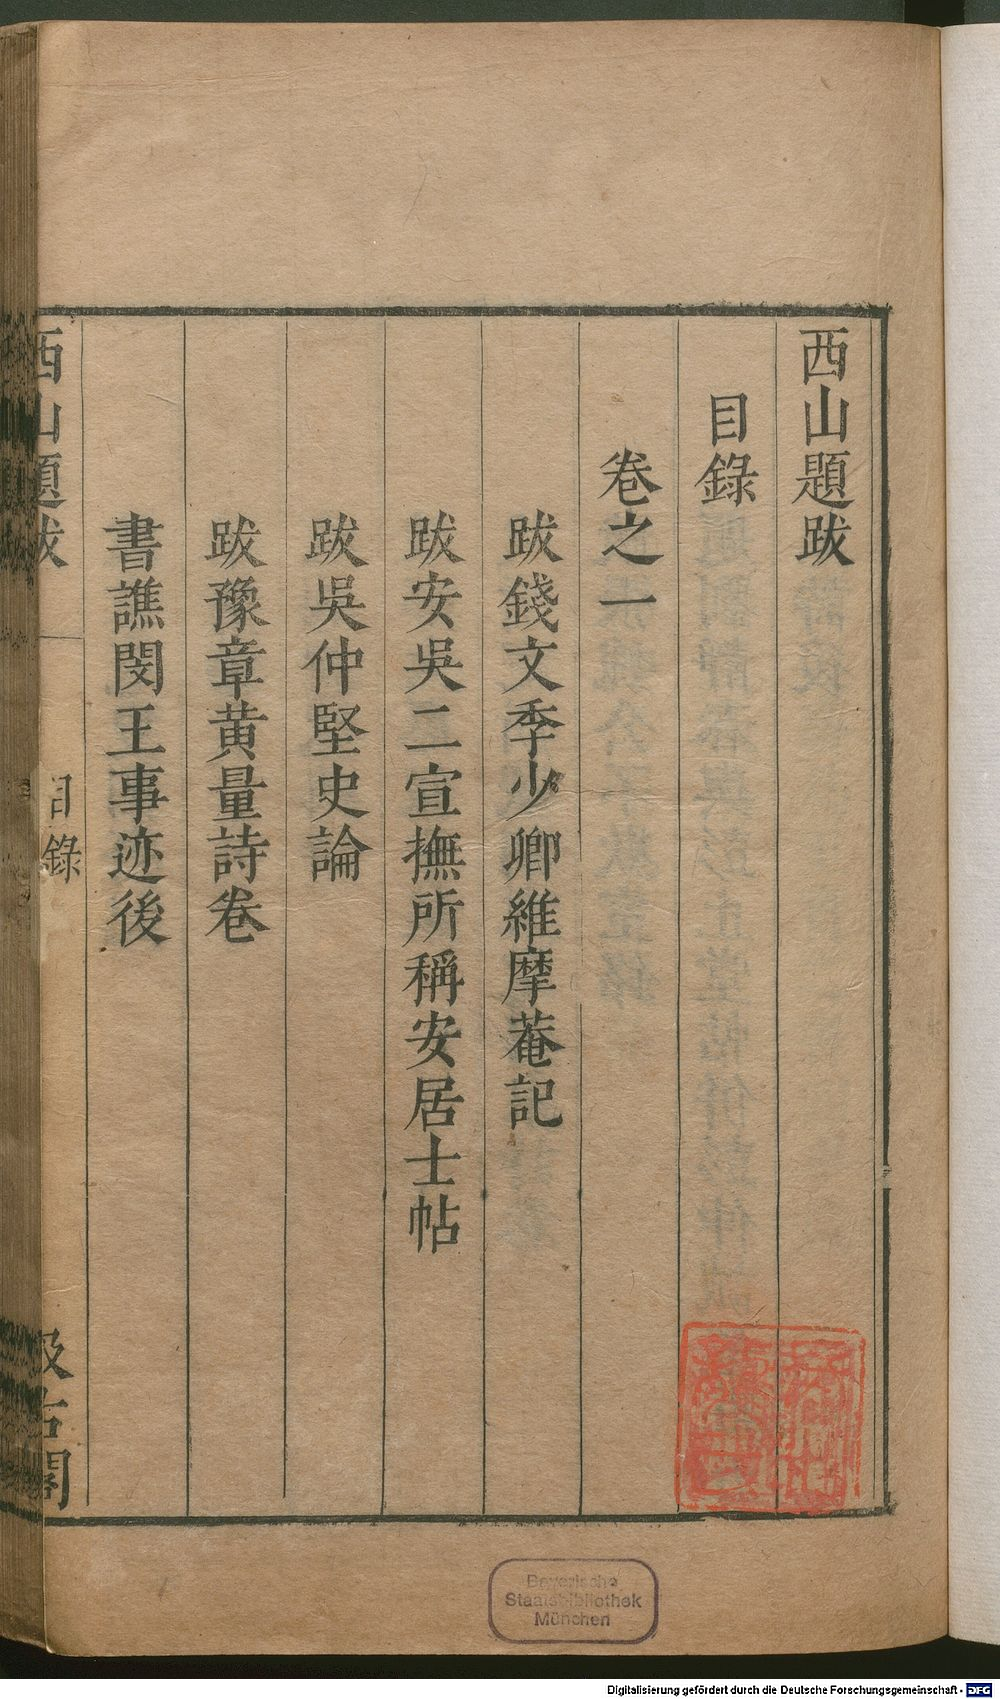 西山題跋
目錄
卷之一
跋錢文季少卿維摩菴記
跋安吳二宣撫所稱安居士帖
跋吳仲堅史論
跋豫章黄量詩卷
書譙閔王事迹後
西山題跋
目錄
汲古閣
Bayerische
Staatsbibliothek
München
Digitalisierung gefördert durch die Deutsche Forschungsgemeinschaft - DFG